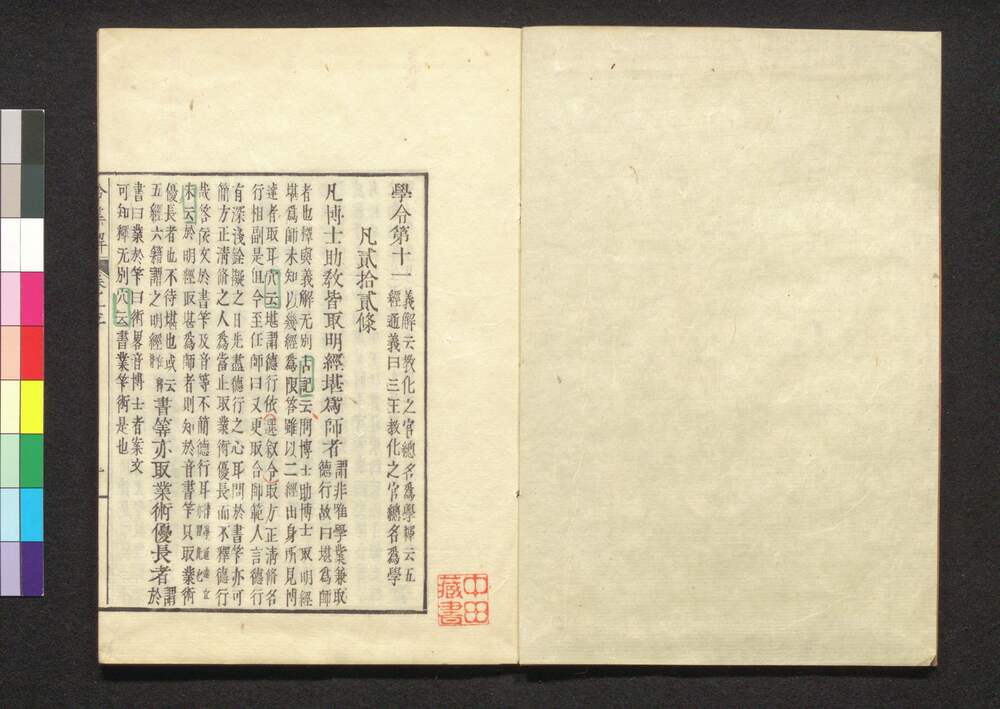 學令第十一 義解云教化之官總名爲學釋云五
經通義曰三王教化之官總名爲學
凡貳拾貳條
凡博士助教皆取明經堪爲師者 謂非唯學業兼取
德行故曰堪爲師
者也釋與義解无別古記云問博士助博士取明經
堪爲師未知以幾經爲限答雖以二經出身所見博
達者取耳穴云堪謂德行依選叙令取方正清脩名
行相副是但今至任師曰又更取合師範人言德行
有深淺詮擬之日先盡德行之心耳問於書筭亦可
簡方正清脩之人爲當止取業術優長而不釋德行
哉答依文於書筭及音等不簡德行耳
未云於明經取堪爲師者則知於音書筭只取業術
優長者也不待堪也或云
五經六籍謂之明經
書筭亦取業術優長者 謂
於
書曰業於筭曰術畧音博士者案文
可知釋无別穴云書業筭術是也
令集解
中田
藏書